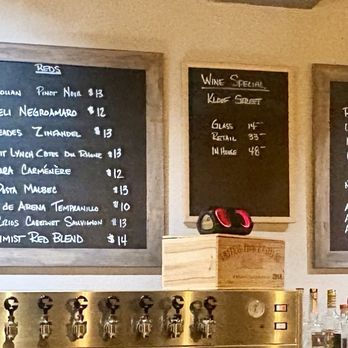 REDS
PINOT NOIR $13
ELI NEGROAMARO $12
EADES ZINFANDEL $13
IT LYNCH COTES DU RHONE $13
ARA CARMÉNÈRE $12
POSTA MALBEC $13
DE ARENA TEMPRANILLO $10
CRIOS CABERNET SAUVIGNON $13
IMIST RED BLEND $14
WINE SPECIAL
KLOOF STREET
GLASS 14
RETAIL 33
IN HOUSE 48